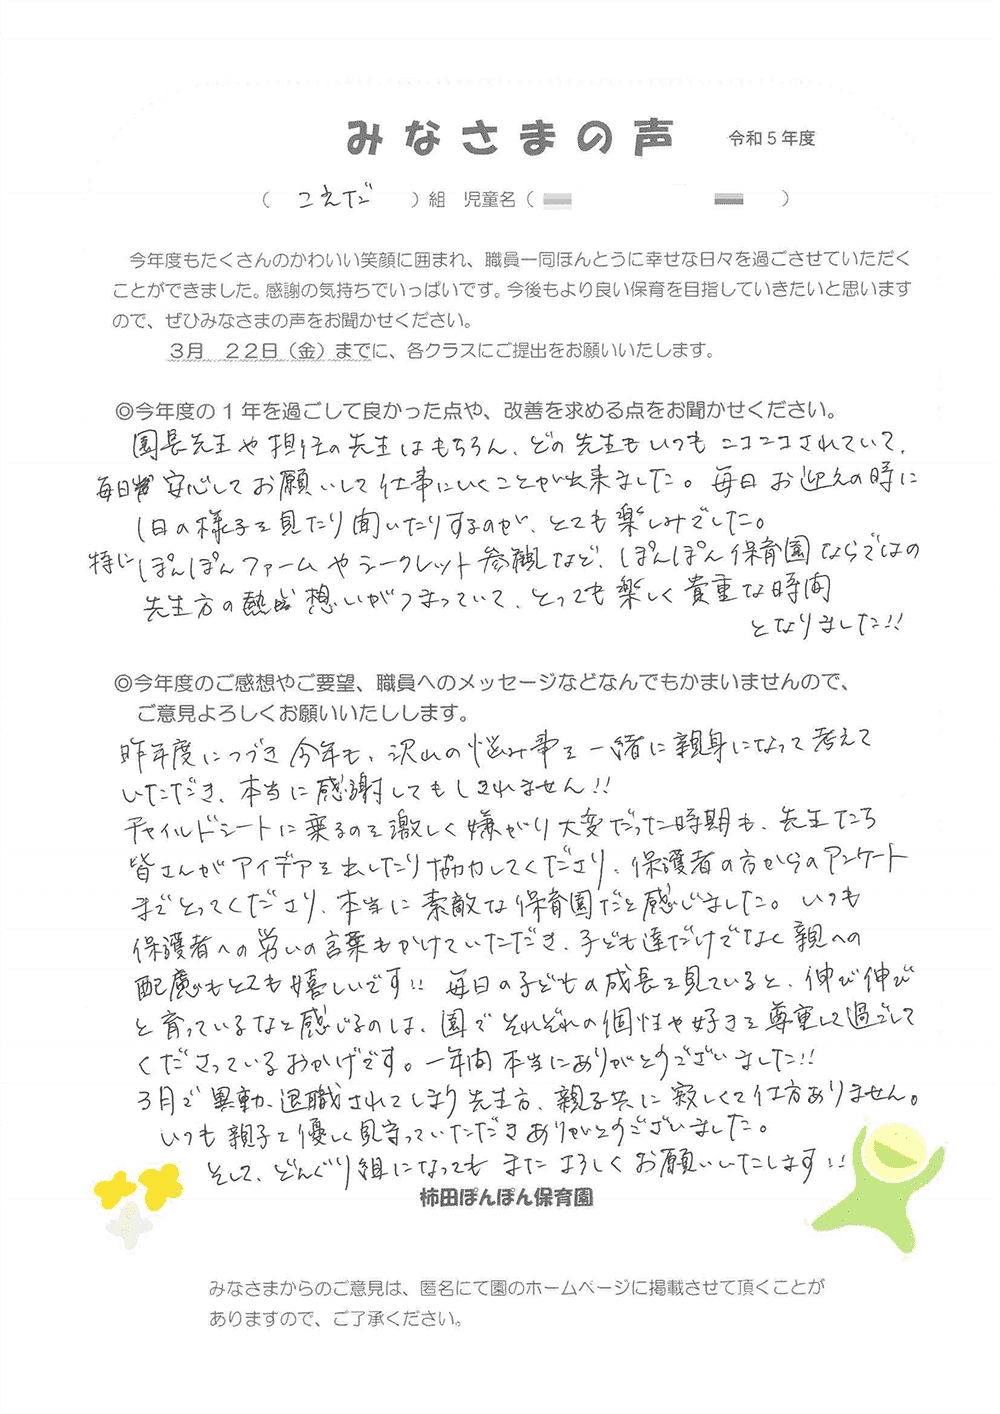 みなさまの声 令和５年度
（ こえだ ）組 児童名（ ）
今年度もたくさんのかわいい笑顔に囲まれ、職員一同ほんとうに幸せな日々を過ごさせていただく
ことができました。感謝の気持ちでいっぱいです。今後もより良い保育を目指していきたいと思います
ので、ぜひみなさまの声をお聞かせください。
３月　２２日（金）までに、各クラスにご提出をお願いいたします。
◎今年度の１年を過ごして良かった点や、改善を求める点をお聞かせください。
園長先生や担任の先生はもちろん、どの先生もいつもニコニコされていて、
毎日安心してお願いして仕事にいくことが出来ました。毎日お迎えの時に
1日の様子を見たり聞いたりするのが、とても楽しみでした。
特にぽんぽんファームやシークレット参観など、ぽんぽん保育園ならではの
先生方の熱い想いがつまっていて、とっても楽しく貴重な時間
となりました!!
◎今年度のご感想やご要望、職員へのメッセージなどなんでもかまいませんので、
ご意見よろしくお願いいたしします。
昨年度につづき今年も、沢山の悩み事を一緒に親身になって考えて
いただき、本当に感謝してもしきれません!!
チャイルドシートに乗るのを激しく嫌がり大変だった時期も、先生たち
皆さんがアイデアを出したり協力してくださり、保護者の方からのアンケート
までとってくださり、本当に素敵な保育園だと感じました。いつも
保護者への労いの言葉もかけていただき、子ども達だけでなく親への
配慮もとても嬉しいです!! 毎日の子どもの成長を見ていると、伸び伸び
と育っているなと感じるのは、園でそれぞれの個性や好きを尊重して過ごして
くださっているおかげです。一年間本当にありがとうございました!!
3月で異動、退職されてしまう先生方、親子共に寂しくて仕方ありません。
いつも親子を優しく見守っていただきありがとうございました。
そして、どんぐり組になってもまたよろしくお願いいたします!!
柿田ぽんぽん保育園
みなさまからのご意見は、匿名にて園のホームページに掲載させて頂くことが
ありますので、ご了承ください。